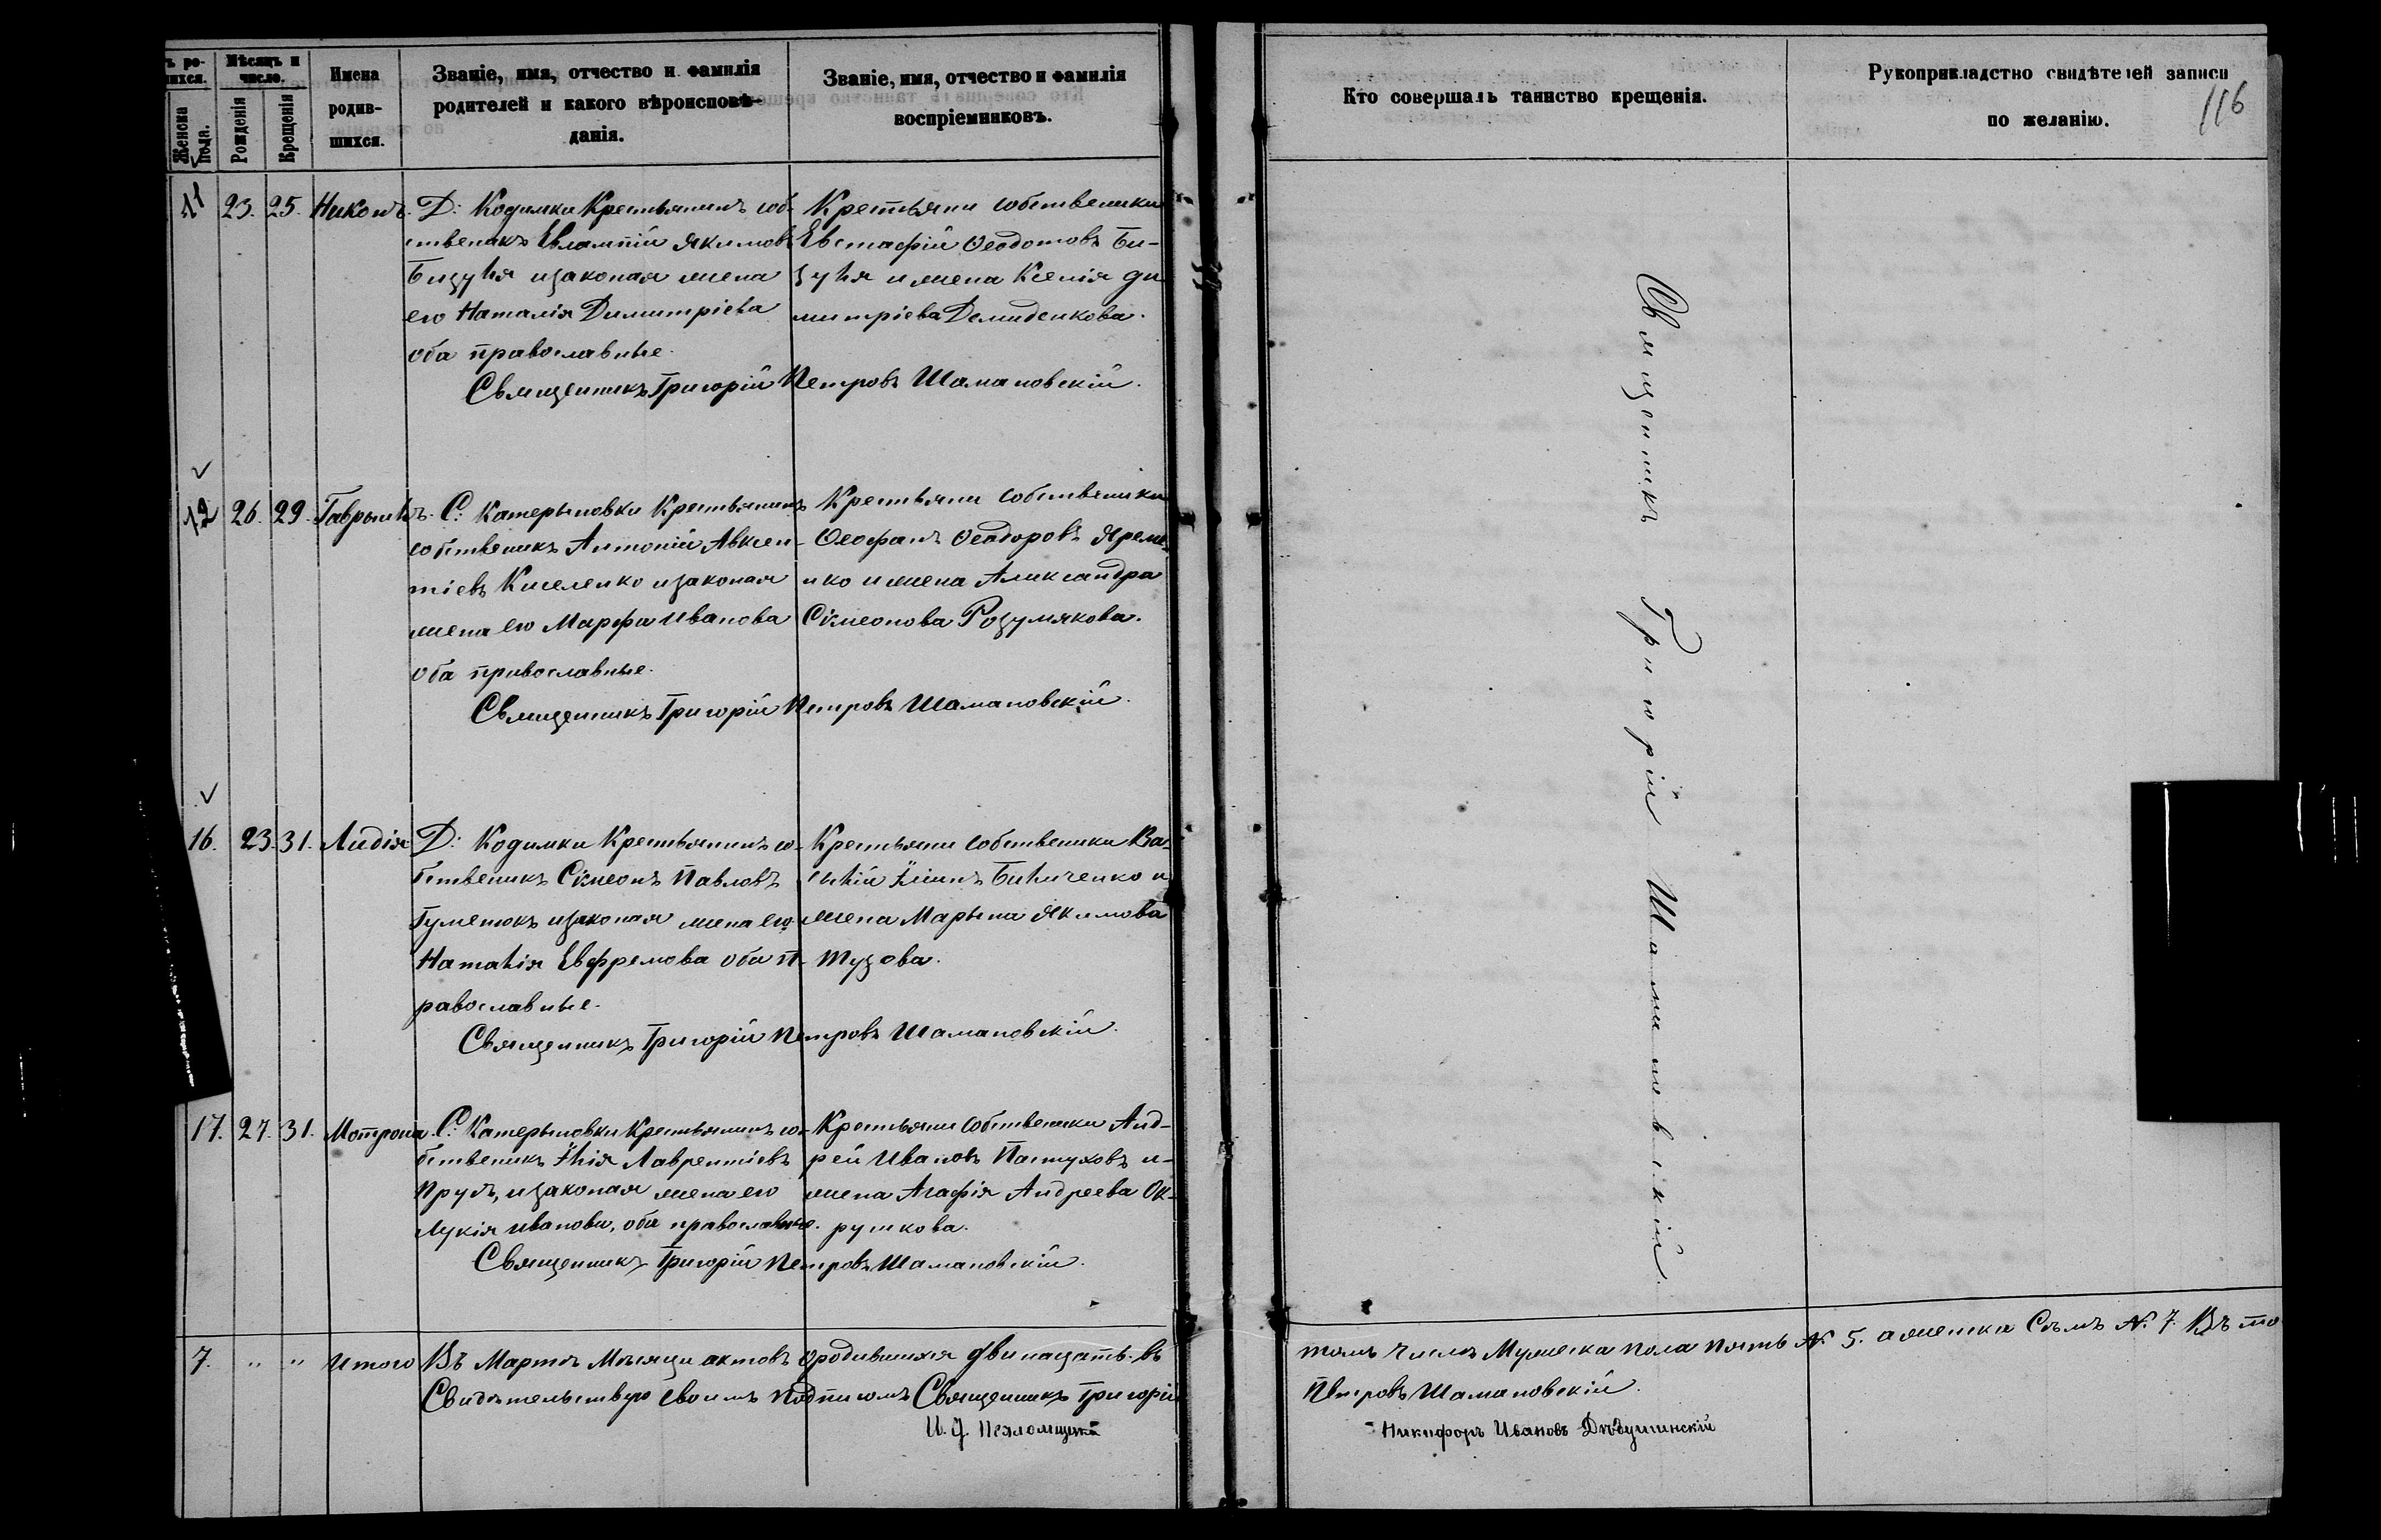 ъ ро-
ихся.
Мѣсяцъ и
число.
Женска
пола.
Рожденія
Крещенія
Имена
родив-
шихся.
Званіе, имя, отчество и фамилія
родителей и какого вѣроисповѣ-
данія.
Званіе, имя, отчество и фамилія
воспріемниковъ.
Кто совершалъ таинство крещенія.
Рукоприкладство свидѣтелей записи
по желанію.
116
11 23. 25. Никонъ.
Д: Кодимки Крестьянинъ соб-
ственикъ Евлампій Якимовъ
Бизуля изаконая жена
его Наталія Димитріева
оба православные.
Крестьяни собственики
Евстафій Феодотовъ Би-
зуля и жена Ксенія Ди
митріева Демиденкова.
Священникъ Григорій Петровъ Шамановскій.
12 26. 29. Гаврыилъ.
С: Катерыновки Крестьянинъ
собственикъ Антоній Авксен-
тіевъ Киселенко изаконая
жена его Марфа Иванова
оба православные.
Крестьяни собственики
Феофанъ Феодоровъ Яреме-
нко и жена Александра
Сімеонова Розумякова.
Священникъ Григорій Петровъ Шамановскій.
16. 23. 31. Лидія
Д: Кодимки Крестьянинъ со-
бственикъ Сімеонъ Павловъ
Гуменюкъ изаконая жена его
Наталія Евфремова оба п-
равославные.
Крестьяни собственики Ва-
силій Биличенко и
жена Марына Якимова
Тузова.
Священникъ Григорій Петровъ Шамановскій.
17. 27. 31. Мотрона.
С: Катерыновки Крестьянинъ со-
бственикъ Илія Лаврентіевъ
Прусъ, изаконая жена его
Лукія Иванова, оба православные.
Крестьяни Собственики Анд-
рей Ивановъ Пастуховъ и-
жена Агафія Андреева Ок-
рушкова.
Священникъ Григорій Петровъ Шамановскій.
Священникъ Григорій Шамановскій.
7. " " Итого Въ Мартѣ Мѣсяци актовъ ородившихся двинацать. въ
томъ числѣ Мужеска пола пять № 5. аженска Сѣмъ №. 7. Въ то
Свидѣтельствую своимъ подписомъ Священникъ Григорій
Петровъ Шамановскій.
И. д. Псаломщика
Никифоръ Ивановъ Дѣдушинскій